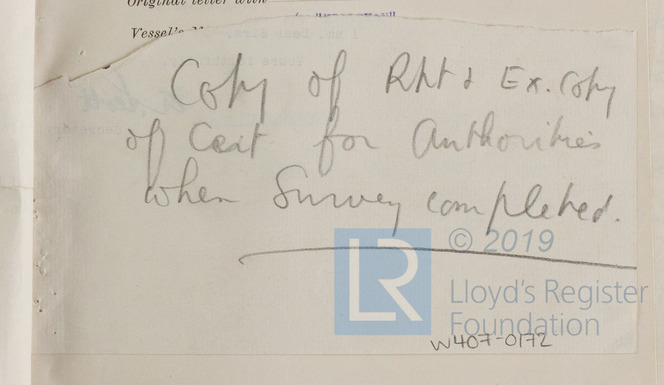 Original letter with
Vessel's
Copy of Rpt & Ex. Copy
of Cert for Authorities
when Survey completed.
© 2019
LR
Lloyd's Register
Foundation
W407-0172